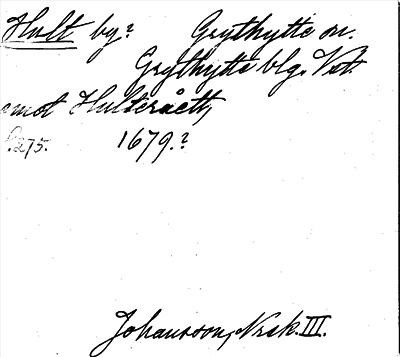 Hult by? Grythytte sn.
Grythytte blg. Vst.
emot Hulteråett,
s. 275. 1679.?
Johansson, Nrsk. III.